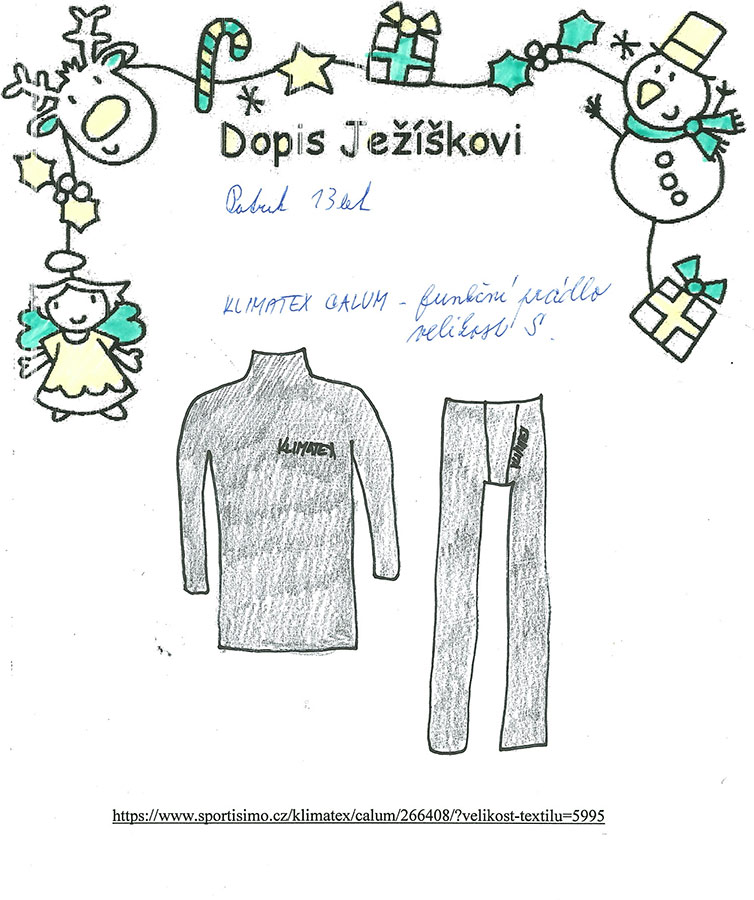 Dopis Ježíškovi
Patrik 13 let
KLIMATEX CALUM - funkční prádlo
velikost S.
KLIMATEX
https://www.sportisimo.cz/klimatex/calum/266408/?velikost-textilu=5995